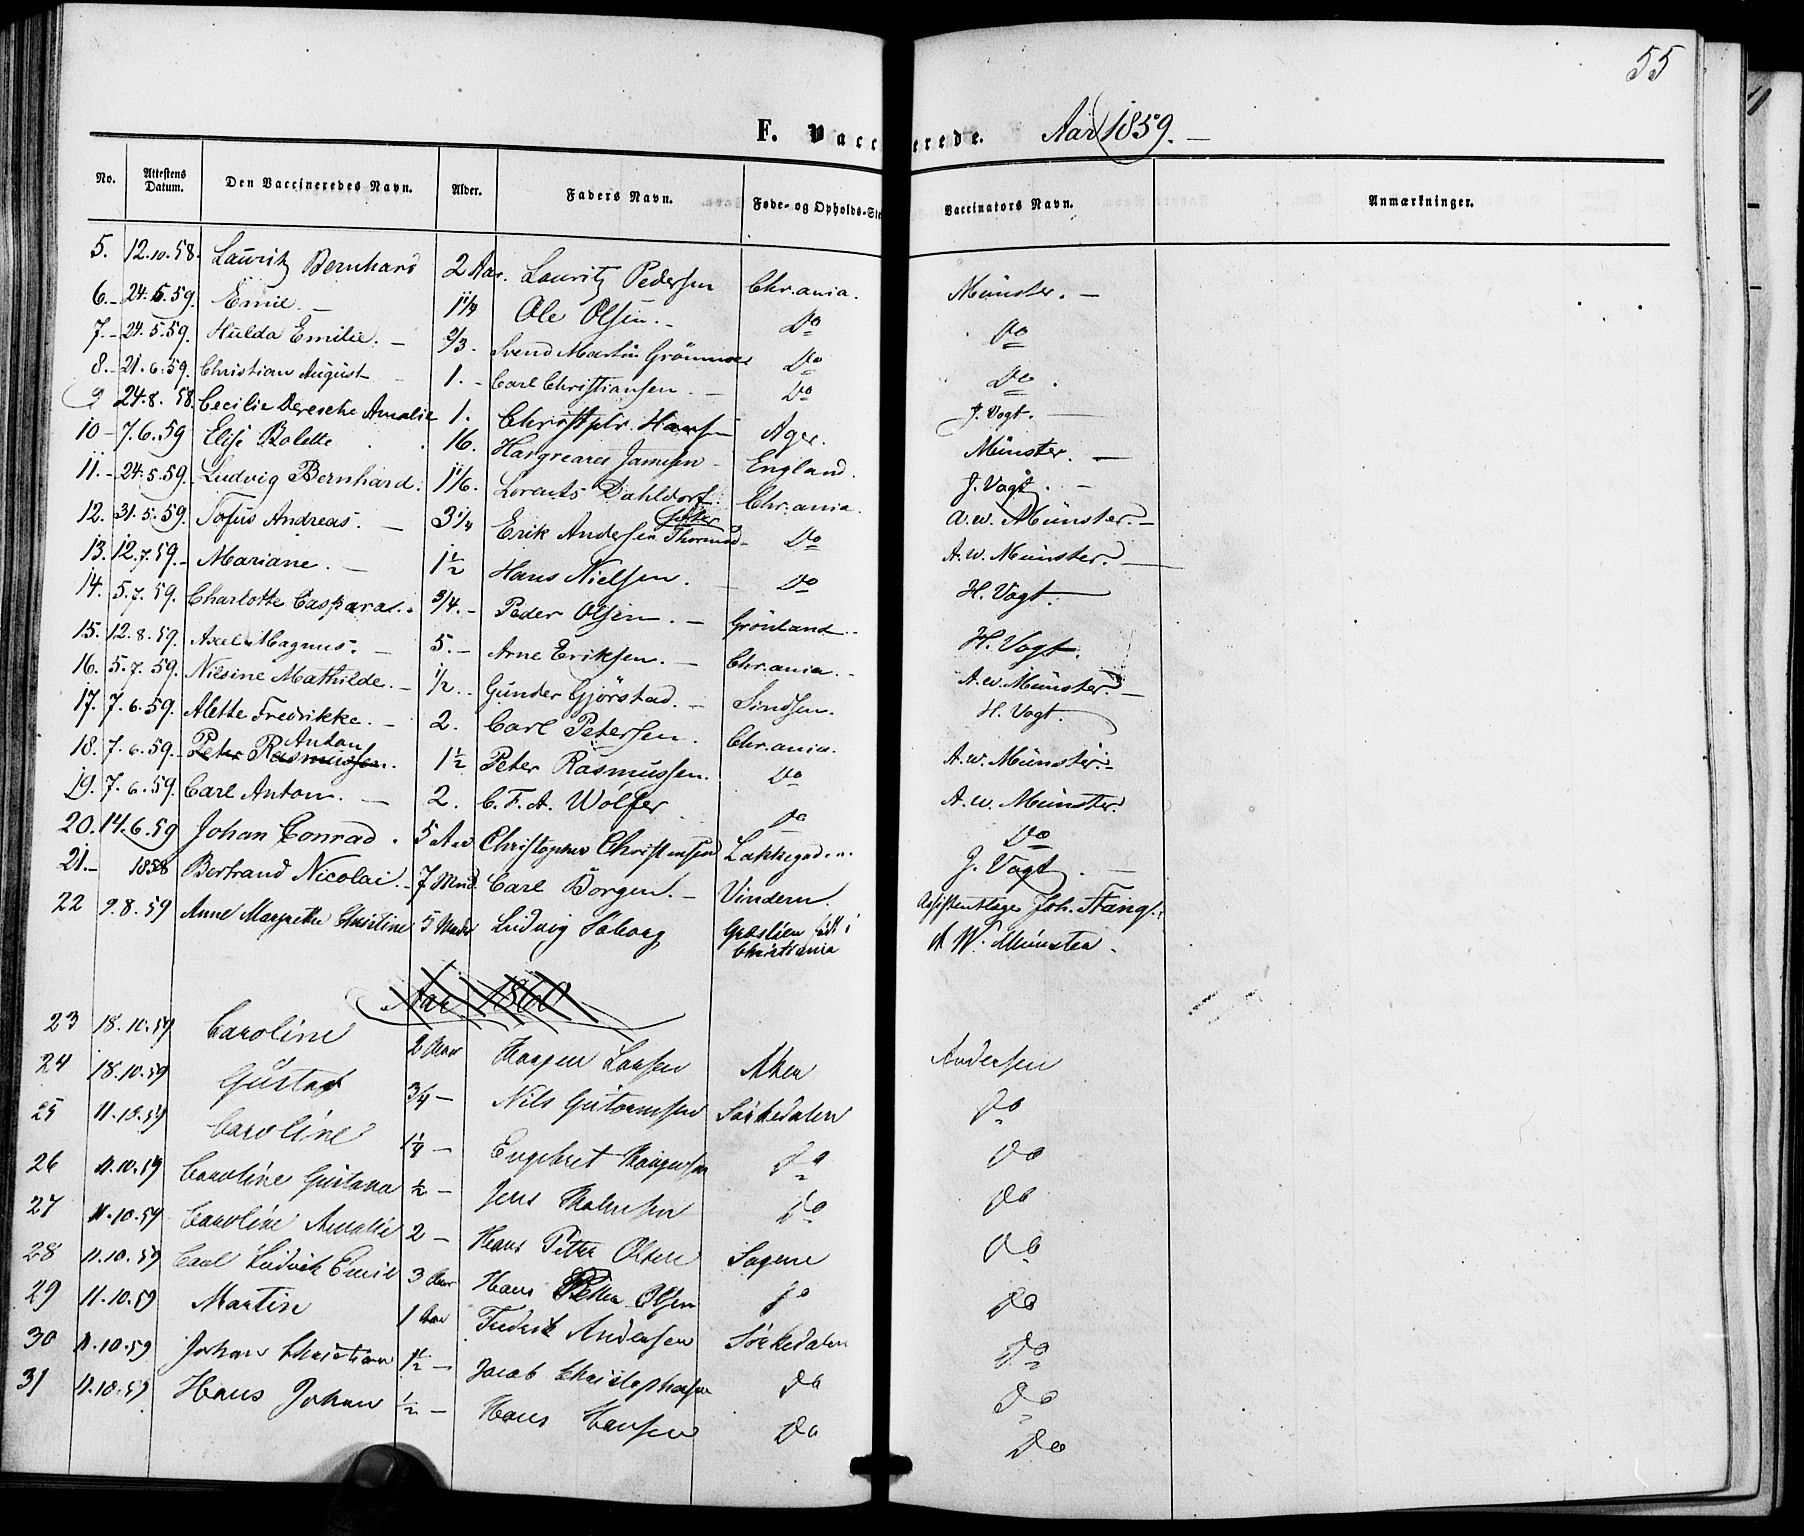 55
F. Vaccinerede. Aar 1859.
No. Attestens Datum. Den Vaccineredes Navn. Alder. Faders Navn. Føde- og Opholds-Ste Vaccinators Navn. Anmærkninger.
5. 12.10.58. Lauritz Bernhard 2 Aar. Lauritz Pedersen Chr.ania. Münster. —
6.- 24.5.59. Emil — 1 1/4 Ole Olsen. - Do Do
7.- 24.5.59. Hulda Emilie. — 2/3. Svend Martin Do Do
8.- 21.6.59. Christian August 1. - Carl Christiansen. — Do Do.
9 24.8.58. Cecilie Amalie 1. Christophr. Hansen Ager. J. Vogt. —
10 - 7.6.59 Elise Bolette 16. Hargreares Jansen - England. Münster. —
11. - 24.5.59. Ludvig Bernhard. 1 1/6. Lorents Dahldorf. Chr.ania. J. Vogt. -
12. 31.5.59. Tofus Andreas. — 3 1/4 Erik Andersen Do A.w. Münster. —
13. 12.7.59. - Mariane. — 1 1/2 Hans Nielsen. — Do A.w. Münster. —
14. 5.7.59. Charlotte Caspara. 3/4. - Peder Olsen. — Grönland. - H. Vogt.
15. 12.8.59. Axel Magnus. — 5. - Arne Eriksen. — Chr.ania. - H. Vogt.
16. 5.7.59. Nilsine Mathilde. - 1/2. - Gunder Gjörstad. — Sindsen. A.w. Münster. —
17. 7.6.59. Alette Fredrikke. - 2. Carl Petersen. Chr.ania. H. Vogt.
18. 7.6.59. Peter Rasmussen. Anton 1 1/2 Peter Rasmussen. Do A.w. Münster. -
19. 7.6.59. Carl Anton. — 2. C. F. A. Wölfer Do A.w. Münster.
20. 14.6.59 Johan Conrad. 5 Aar Christopher Christensen Lakkegaden. Do
21. - 1858 Bertrand Nicolai. - 7 Mnd. Carl Borgen. - Vindern. J. Vogt. —
22 9.8.59 Anne Margrethe Christine 5 Mnder Ludvig Söborg født i Christiania Joh. Stang. A W. Münster.
Aar 1860
23 18.10.59 Caroline 2 Aar Hagen Larsen Aker Andersen
24 18.10.59 Gustav 3/4 — Nils Gutormsen Sørkedalen Do
25 11.10.59 Caroline 1 1/4 — Engebret Do Do
26 11.10.59 Caroline Gustava 1/2 — Jens Do Do
27 11.10.59 Caroline Amalie 2 — Hans Petter Olsen Sagene Do
28 11.10.59 Carl Ludvik Emil 3 Aar Hans Petter Olsen Do Do
29 11.10.59 Martin 1 Aar Fredrik Andersen Sörkedalen Do
30 11.10.59 Johan Christian 1 1/2 — Jacob Christophersen Do Do
31 11.10.59 Hans Johan 1/2 — Hans Hansen Do Do